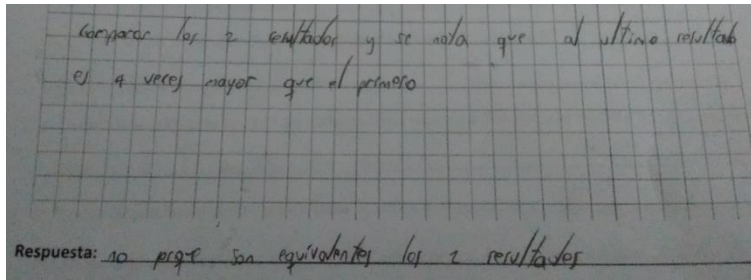 comparar los 2 resultados y se nota que al ultimo resultado
es 4 veces mayor que el primero
Respuesta: no porqe son equivalentes los 2 resultados